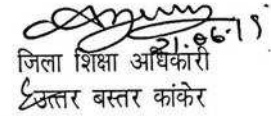 21.06.19
जिला शिक्षा अधिकारी
उत्तर बस्तर कांकेर